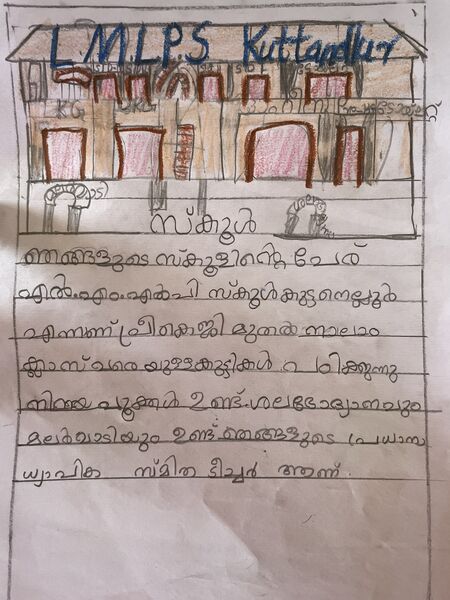 L.M.L.P.S Kuttanellur
KG
UKG
സ്കൂൾ
ഞങ്ങളുടെ സ്കൂളിന്റെ പേര്
എൽ.എം.എൽപി സ്കൂൾ കുട്ടനെല്ലൂർ
എന്നണ് പ്രീകെജി മുതൽ നാലാം
ക്ലാസ് വരെ യുള്ള കുട്ടികൾ പഠിക്കുന്നു
നിറയെ പൂക്കൾ ഉണ്ട്. ശലഭോദ്യാനവും
മലർവാടിയും ഉണ്ട് ഞങ്ങളുടെ പ്രധാന
ധ്യാപിക സ്മിത ടീച്ചർ ആണ്.